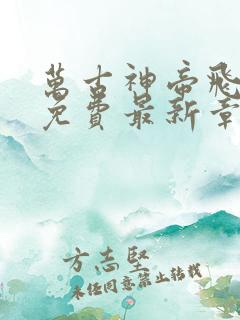 萬古神帝飛
免費最新章
方志堅
未經同意禁止轉載